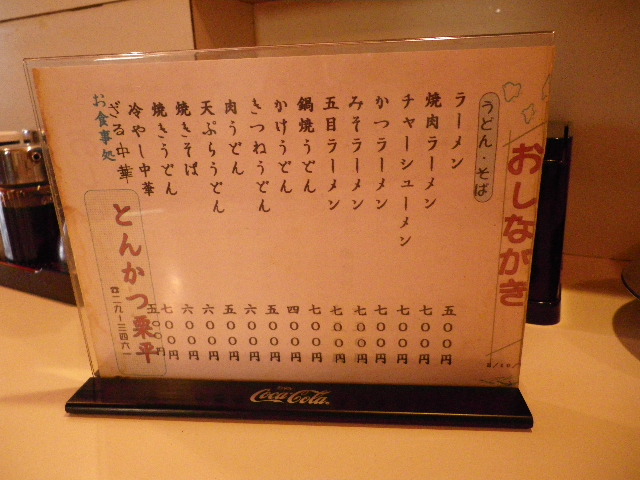 おしながき
うどん・そば
ラーメン 五〇〇円
焼肉ラーメン 七〇〇円
チャーシューメン 七〇〇円
かつラーメン 七〇〇円
みそラーメン 七〇〇円
五目ラーメン 七〇〇円
鍋焼うどん 七〇〇円
かけうどん 四〇〇円
きつねうどん 五〇〇円
肉うどん 六〇〇円
天ぷらうどん 五〇〇円
焼きそば 六〇〇円
焼きうどん 六〇〇円
冷やし中華 七〇〇円
ざる中華 五〇〇円
お食事処
とんかつ栗平
☎二九ー三四六一
Coca-Cola